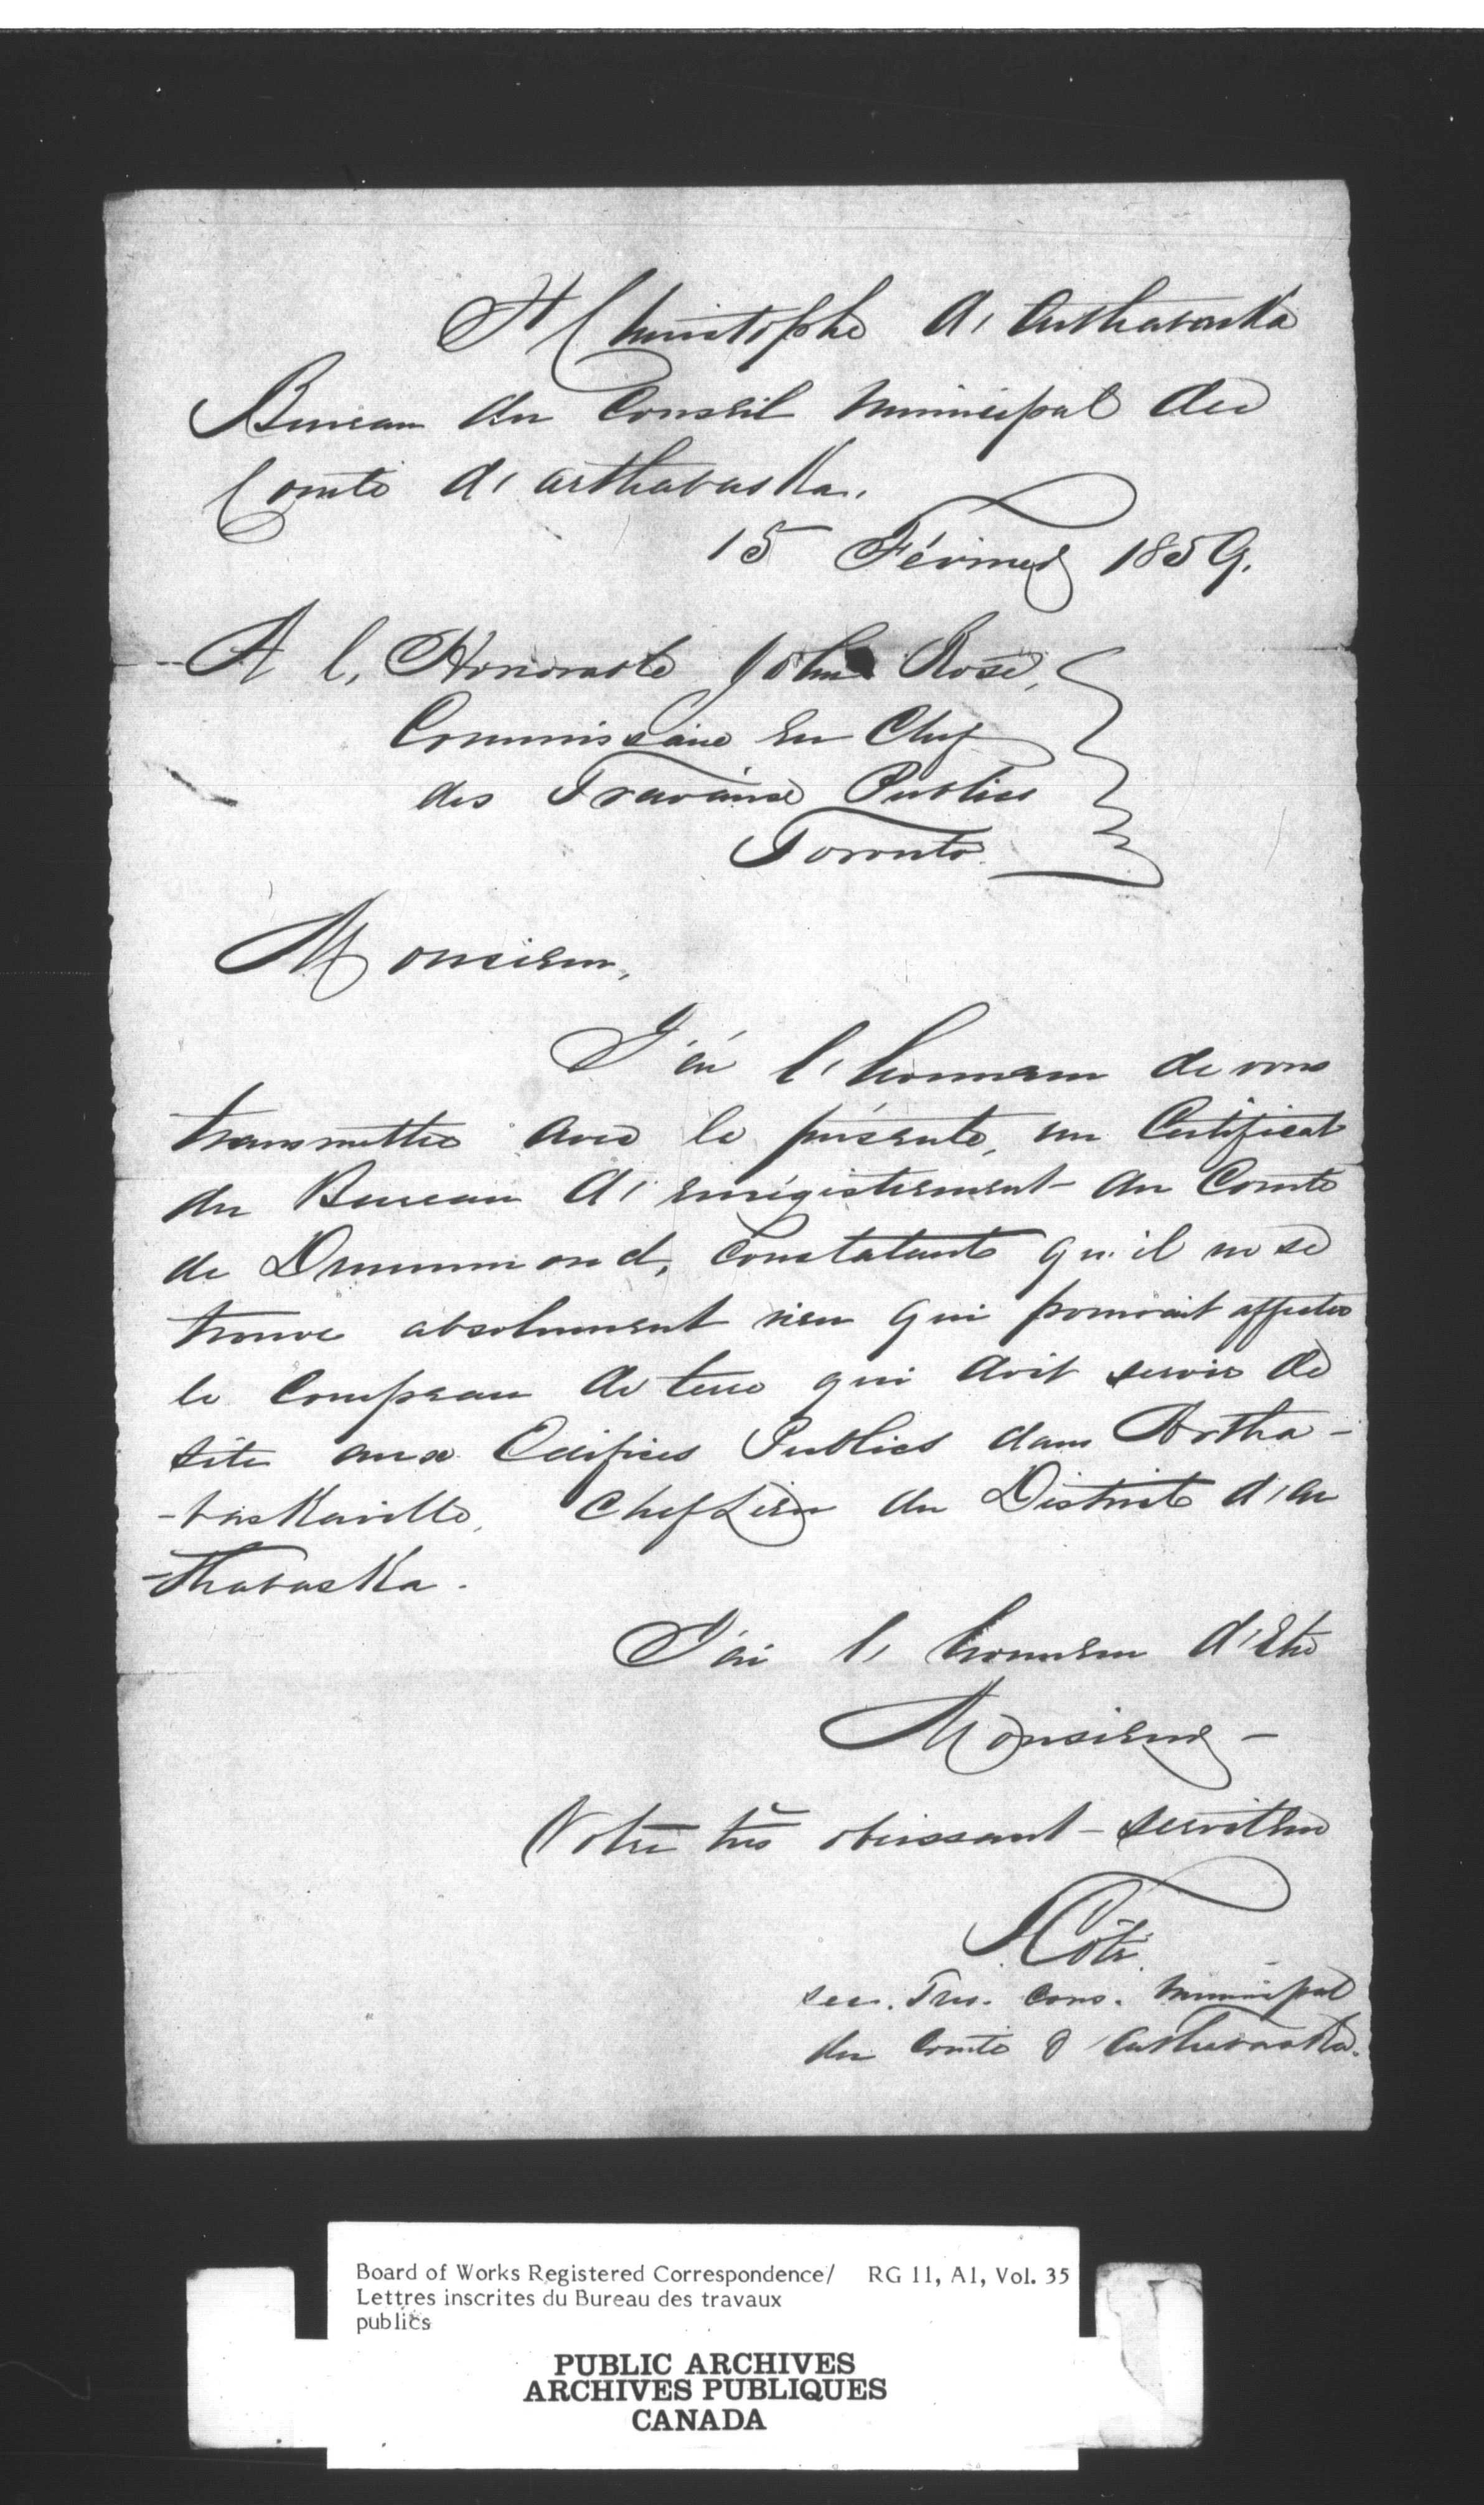 St Christophe d'Arthabaska
Bureau du Conseil Municipal du
Comté d'arthabaska.
15 Février 1859.
A l'Honorable John Rose,
Commissaire En Chef
des Travaux Publics
Toronto.
Monsieur,
J'ai l'honneur de vous
transmettre avec la présente, un Certificat
du Bureau d'enrégistrement du Comté
de Drummond, constatant qu'il ne se
trouve absolument rien qui pourrait affecter
le Compeau de terre qui doit servir de
site aux Edifices Publics dans Artha-
-baskaville, Chef Lieu du District d'ar
-thabaska.
J'ai l'honneur d'Etre
Monsieur -
Votre très obéissant - serviteur
Côté
sec. Trés. Cons. Municipal
du Comté d'Arthabaska.
Board of Works Registered Correspondence/ RG 11, A1, Vol. 35
Lettres inscrites du Bureau des travaux
publics
PUBLIC ARCHIVES
ARCHIVES PUBLIQUES
CANADA